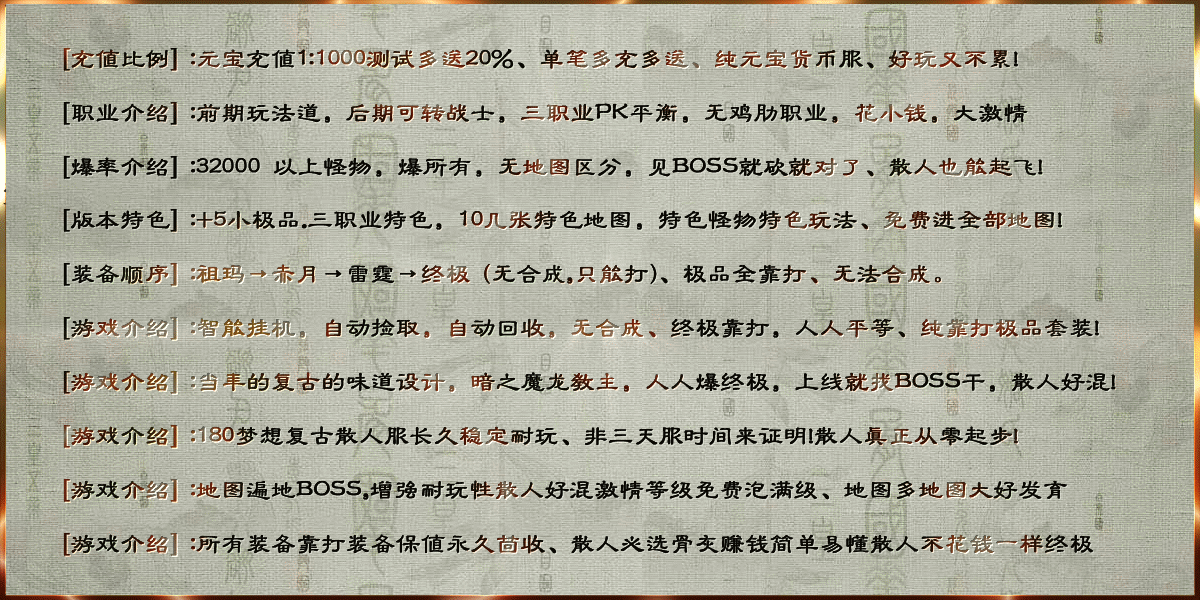 [充值比例] :元宝充值1:1000测试多送20%、单笔多充多送、纯元宝货币服、好玩又不累!
[职业介绍] :前期玩法道，后期可转战士，三职业PK平衡，无鸡肋职业，花小钱，大激情
[爆率介绍] :32000 以上怪物，爆所有，无地图区分，见BOSS就砍就对了、散人也能起飞!
[版本特色] :+5小极品.三职业特色，10几张特色地图，特色怪物特色玩法、免费进全部地图!
[装备顺序] :祖玛→赤月→雷霆→终极（无合成,只能打)、极品全靠打、无法合成。
[游戏介绍] :智能挂机，自动捡取，自动回收，无合成、终极靠打，人人平等、纯靠打极品套装!
[游戏介绍] :当年的复古的味道设计，暗之魔龙教主，人人爆终极，上线就找BOSS干，散人好混!
[游戏介绍] :180梦想复古散人服长久稳定耐玩、非三天服时间来证明!散人真正从零起步!
[游戏介绍] :地图遍地BOSS,增强耐玩性散人好混激情等级免费泡满级、地图多地图大好发育
[游戏介绍] :所有装备靠打装备保值永久回收、散人必选骨灰赚钱简单易懂散人不花钱一样终极